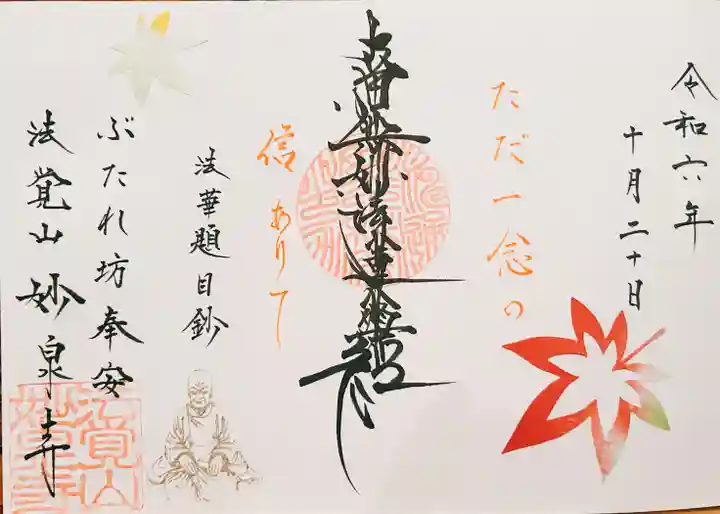 令和六年
十月二十日
ただ一念の
南無妙法蓮華経
信ありて
法華題目鈔
ぶたれ坊奉安
法覚山妙泉寺